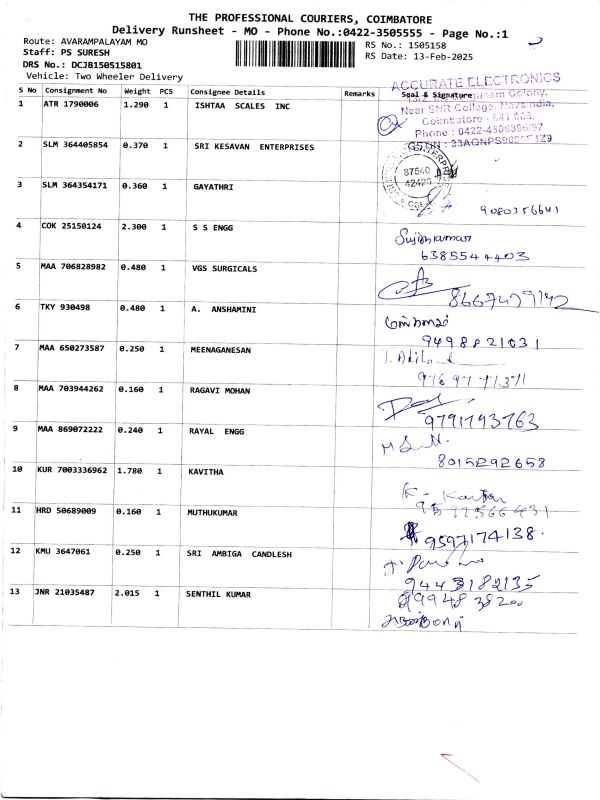 THE PROFESSIONAL COURIERS, COIMBATORE
Delivery Runsheet - MO - Phone No.:0422-3505555 - Page No.:1
Route: AVARAMPALAYAM MO RS No.: 1505158
Staff: PS SURESH RS Date: 13-Feb-2025
DRS No.: DCJB150515801
Vehicle: Two Wheeler Delivery
ACCURATE ELECTRONICS
S No Consignment No Weight PCS Consignee Details Remarks Seal & Signature
1 ATR 1790006 1.290 1 ISHTAA SCALES INC
Colony,
Near SNR College, Navaindia,
Coimbatore - 641 006.
Phone : 0422-4506396/97
2 SLM 364405854 0.370 1 SRI KESAVAN ENTERPRISES
87540
42420
3 SLM 364354171 0.360 1 GAYATHRI
9080356641
4 COK 25150124 2.300 1 S S ENGG
6385544403
5 MAA 706828982 0.480 1 VGS SURGICALS
6 TKY 930498 0.480 1 A. ANSHAMINI
9498821031
7 MAA 650273587 0.250 1 MEENAGANESAN
8 MAA 703944262 0.160 1 RAGAVI MOHAN
9791793763
9 MAA 869072222 0.240 1 RAYAL ENGG
8015292658
10 KUR 7003336962 1.780 1 KAVITHA
11 HRD 50689009 0.160 1 MUTHUKUMAR
9597174138.
12 KMU 3647061 0.250 1 SRI AMBIGA CANDLESH
9443182135
13 JNR 21035487 2.015 1 SENTHIL KUMAR